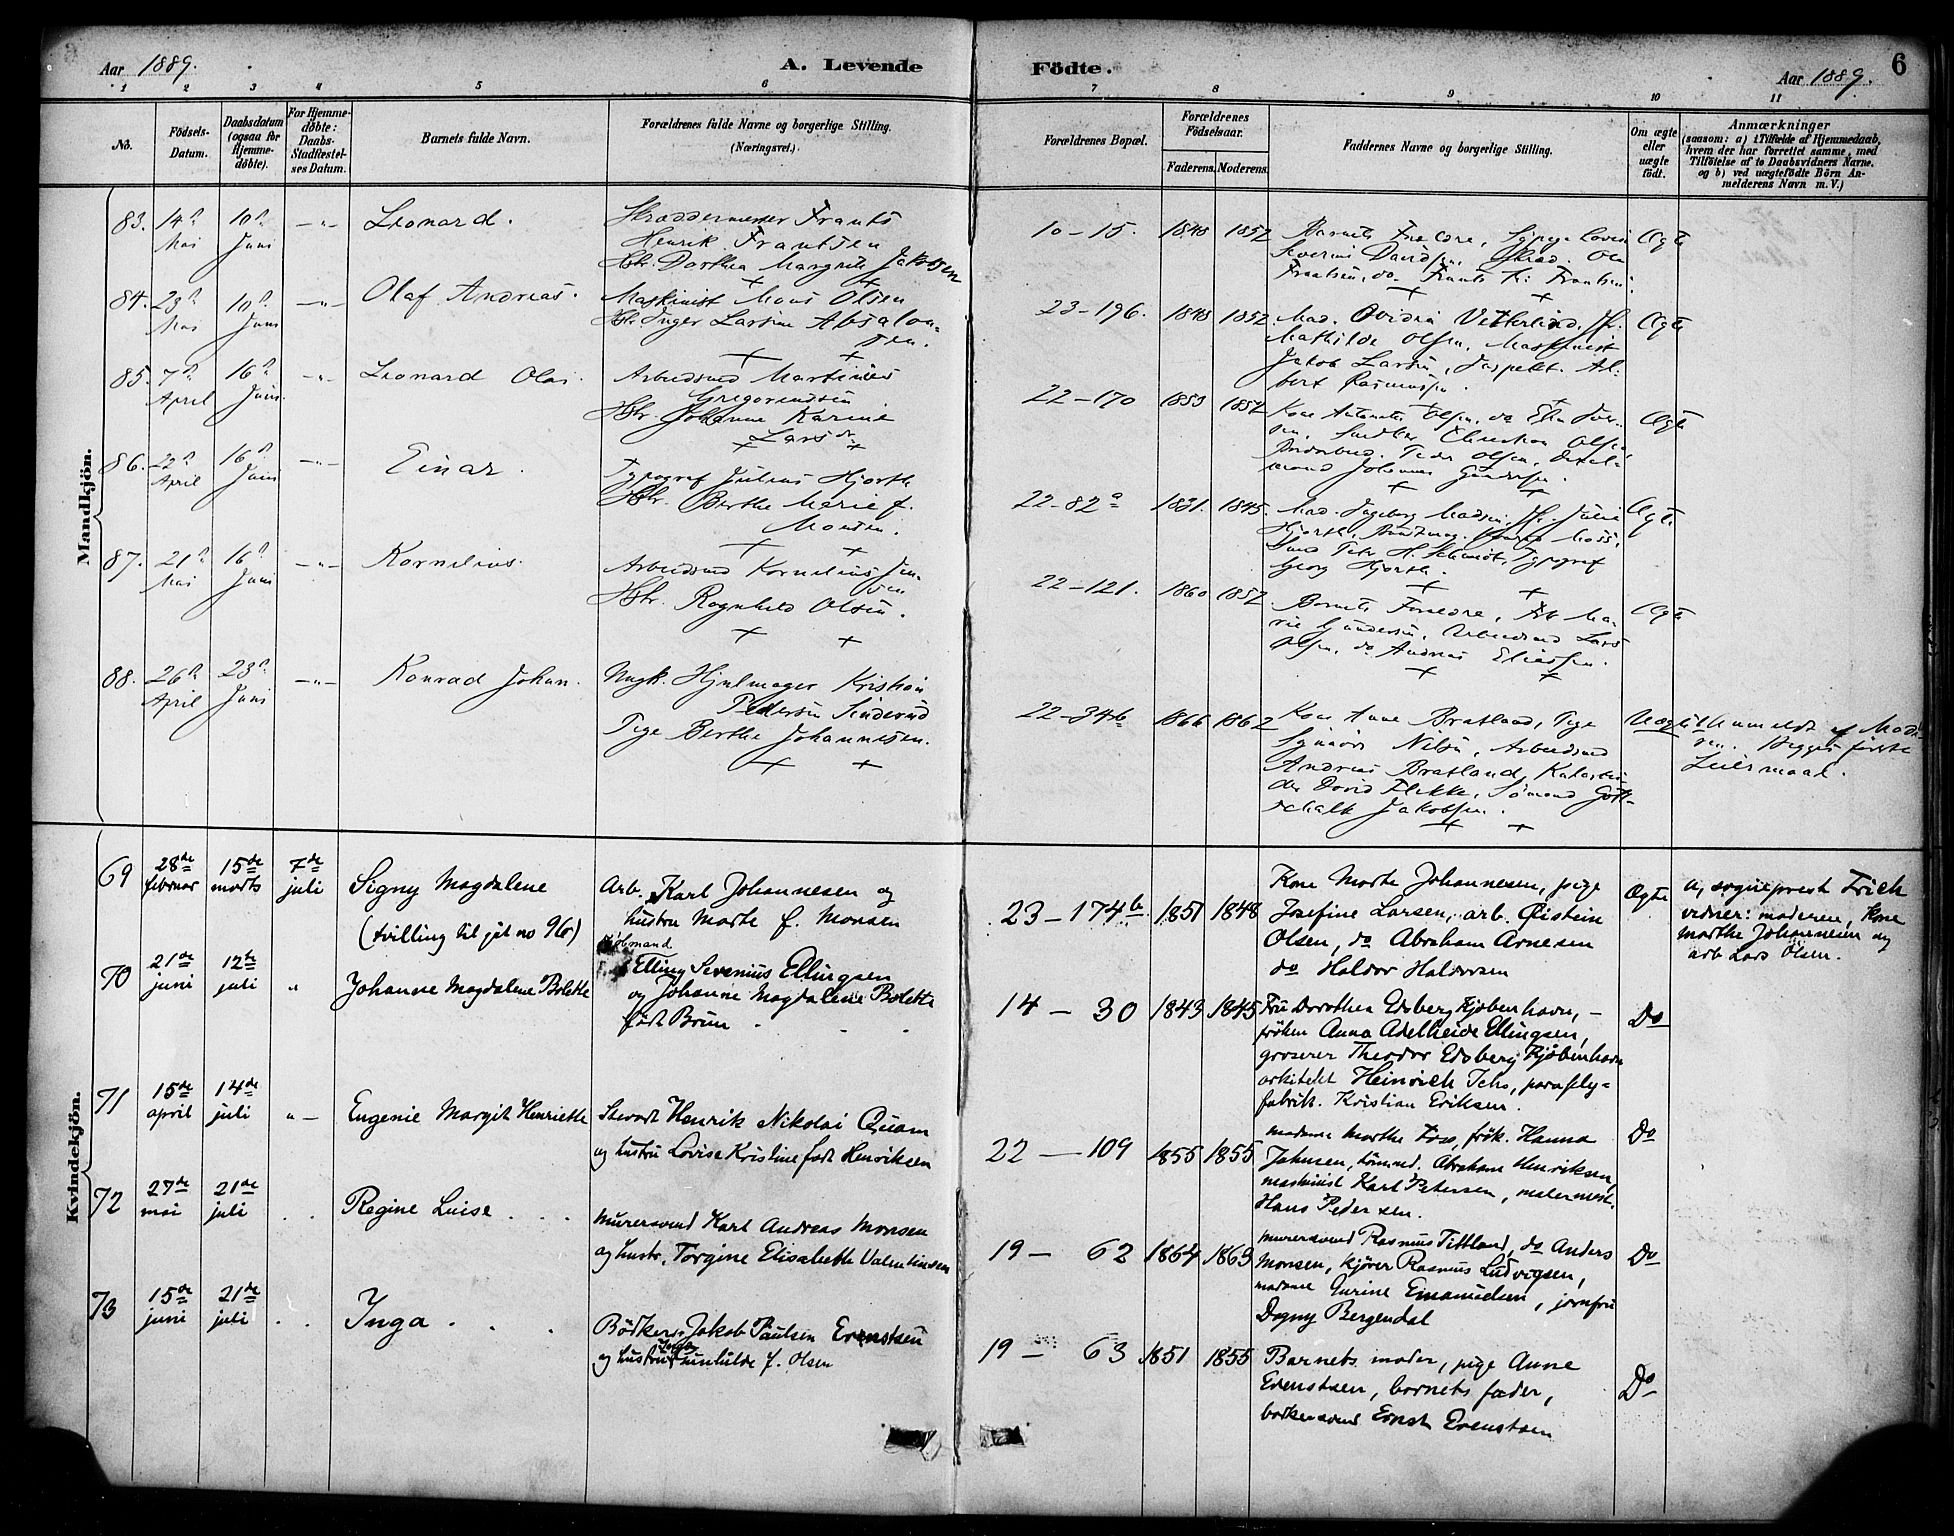 Aar 1889.
A. Levende Födte.
Aar 1889.
6
1 2 3 4 5 6 7 8 9 10 11
No.
Födsels-Datum.
Daabsdatum (ogsaa for Hjemmedöbte).
For Hjemmedöbte: Daabs-Stadfæstelses Datum.
Barnets fulde Navn.
Forældrenes fulde Navne og borgerlige Stilling. (Næringsvei.)
Forældrenes Bopæl.
Forældrenes Födselsaar.
Faderens. Moderens.
Faddernes Navne og borgerlige Stilling.
Om ægte eller uægte födt.
Anmærkninger
(saasom: a) i Tilfælde af Hjemmedaab,
hvem der har forrettet samme, med
Tilföielse af to Daabsvidners Navne.
og b) ved uægtefödte Börn An-
melderens Navn m. V.)
Mandkjön.
83. 14de Mai 10de Juni -"- Leonard.
Skræddermester Frants
Henrik Frantsen
Hstr. Dorthea Margrete Jakobsen
10-15. 1848 1852
Barnets Forældre,
Severine Davidsen,
Frantsen, do Frants Fr. Frantsen.
Ægte
84. 23de Mai 10de Juni -"- Olaf Andreas.
Maskinist Mons Olsen
Hstr. Inger Larsine Absalon-
sen.
23-196. 1848 1852.
Mad.
Mathilde Olsen, Maskinist
Jakob Larsen, Inspekt. Al-
bert Rasmussen.
Ægte
85. 7de April 16de Juni. -"- Leonard Olai.
Arbeidsmd Martinus
Gregoriussen
Hstr. Johanne Karine
Larsdr.
22-170 1853 1852
Kone Antonette Olsen, do
Christian Olsen
Peder Olsen,
Johannes Gundersen.
Ægte
86. 22de April 16de Juni -"- Einar.
Typograf Julius Hjorth
Hstr. Berthe Marie f.
Monsen.
22-82a 1831. 1845.
Mad. Ingeborg Madsen, Jfr. Julie
Hjorth,
H. Schmidt, Typograf
Georg Hjorth.
Ægte
87. 21de Mai 16de Juni -"- Kornelius.
Arbeidsmd Kornelius Jen-
sen
Hstr. Ragnhild Olsen.
22-121. 1860 1852
Barnets Forældre, Frk Ma-
rie Gundersen, Arbeidsmd Lars
Olsen, do Andreas Eliassen.
Ægte
88. 26de April 23de Juni -"- Konrad Johan.
Ungk. Hjulmager Kristian
Pedersen Sinderud
Pige Berthe Johannesen.
22-34b 1866 1862
Kone Anne Bratland, Pige
Synnöve Nilsen, Arbeidsmd
Andreas Bratland,
David Flekke, Sömand Gott-
schalk Jakobsen.
Uægte
Anmeldt af Mode-
ren. Begges förste
Leiermaal.
Kvindekjön.
69 28de februar 15de marts 7de juli
Signy Magdalene
(tvilling til pit no 96)
Arb. Karl Johannesen og
hustru Marte f. Monsen
23-174b 1851 1848
Kone Marte Johannesen, pige
Josefine Larsen, arb. Øistein
Olsen, do Abraham Arnesen
do Haldor Haldorsen
Ægte
a, sogneprest Frich
vidner: moderen, kone
Marthe Johannesen og
arb Lars Olsen.
70 21de juni 12te juli "
Johanne Magdalene Bolette
Kjöbmand
Elling Severinus Ellingsen
og Johanne Magdalene Bolette
födt Brun
14 - 30 1843 1845
Fru Dorothea Edsberg Kjöbenhavn, -
fröken Anna Adelheide Ellingsen,
grosserer Theodor Edsberg Kjöbenhavn
arkitekt Heinrich Jehs, paraply-
fabrik. Kristian Eriksen.
Do
71 15de april 14de juli "-
Eugenie Margit Henriette
Stevart Henrik Nikolai Quam
og hustru Lovise Kristine födt Henriksen
22 - 109 1855 1855
madame Marthe Foss, frök. Hanna
Johnsen, tömmd. Abraham Henriksen,
maskinist Karl Petersen, malermest.
Hans Pedersen.
Do
72 27de mai 21de juli
Regine Luise
Murersvend Karl Andreas Monsen
og hustr. Torgine Elisabeth Valentinsen
19 - 62 1864 1863
murersvend Rasmus Tittland, do Anders
Monsen, kjörer Rasmus Ludvigsen,
madame Gurine Emanuelsen, jomfru
Dagny Bergendal
Do
73 15de juni 21de juli
Inga
Bödkersv. Jakob Paulsen Evenstsen
og hustru Gunhilde f. Olsen
19 - 63 1851 1855
Barnets moder, pige Anne
Evenstsen, barnets fader,
bödkersvend Ernst Evenstsen
Do